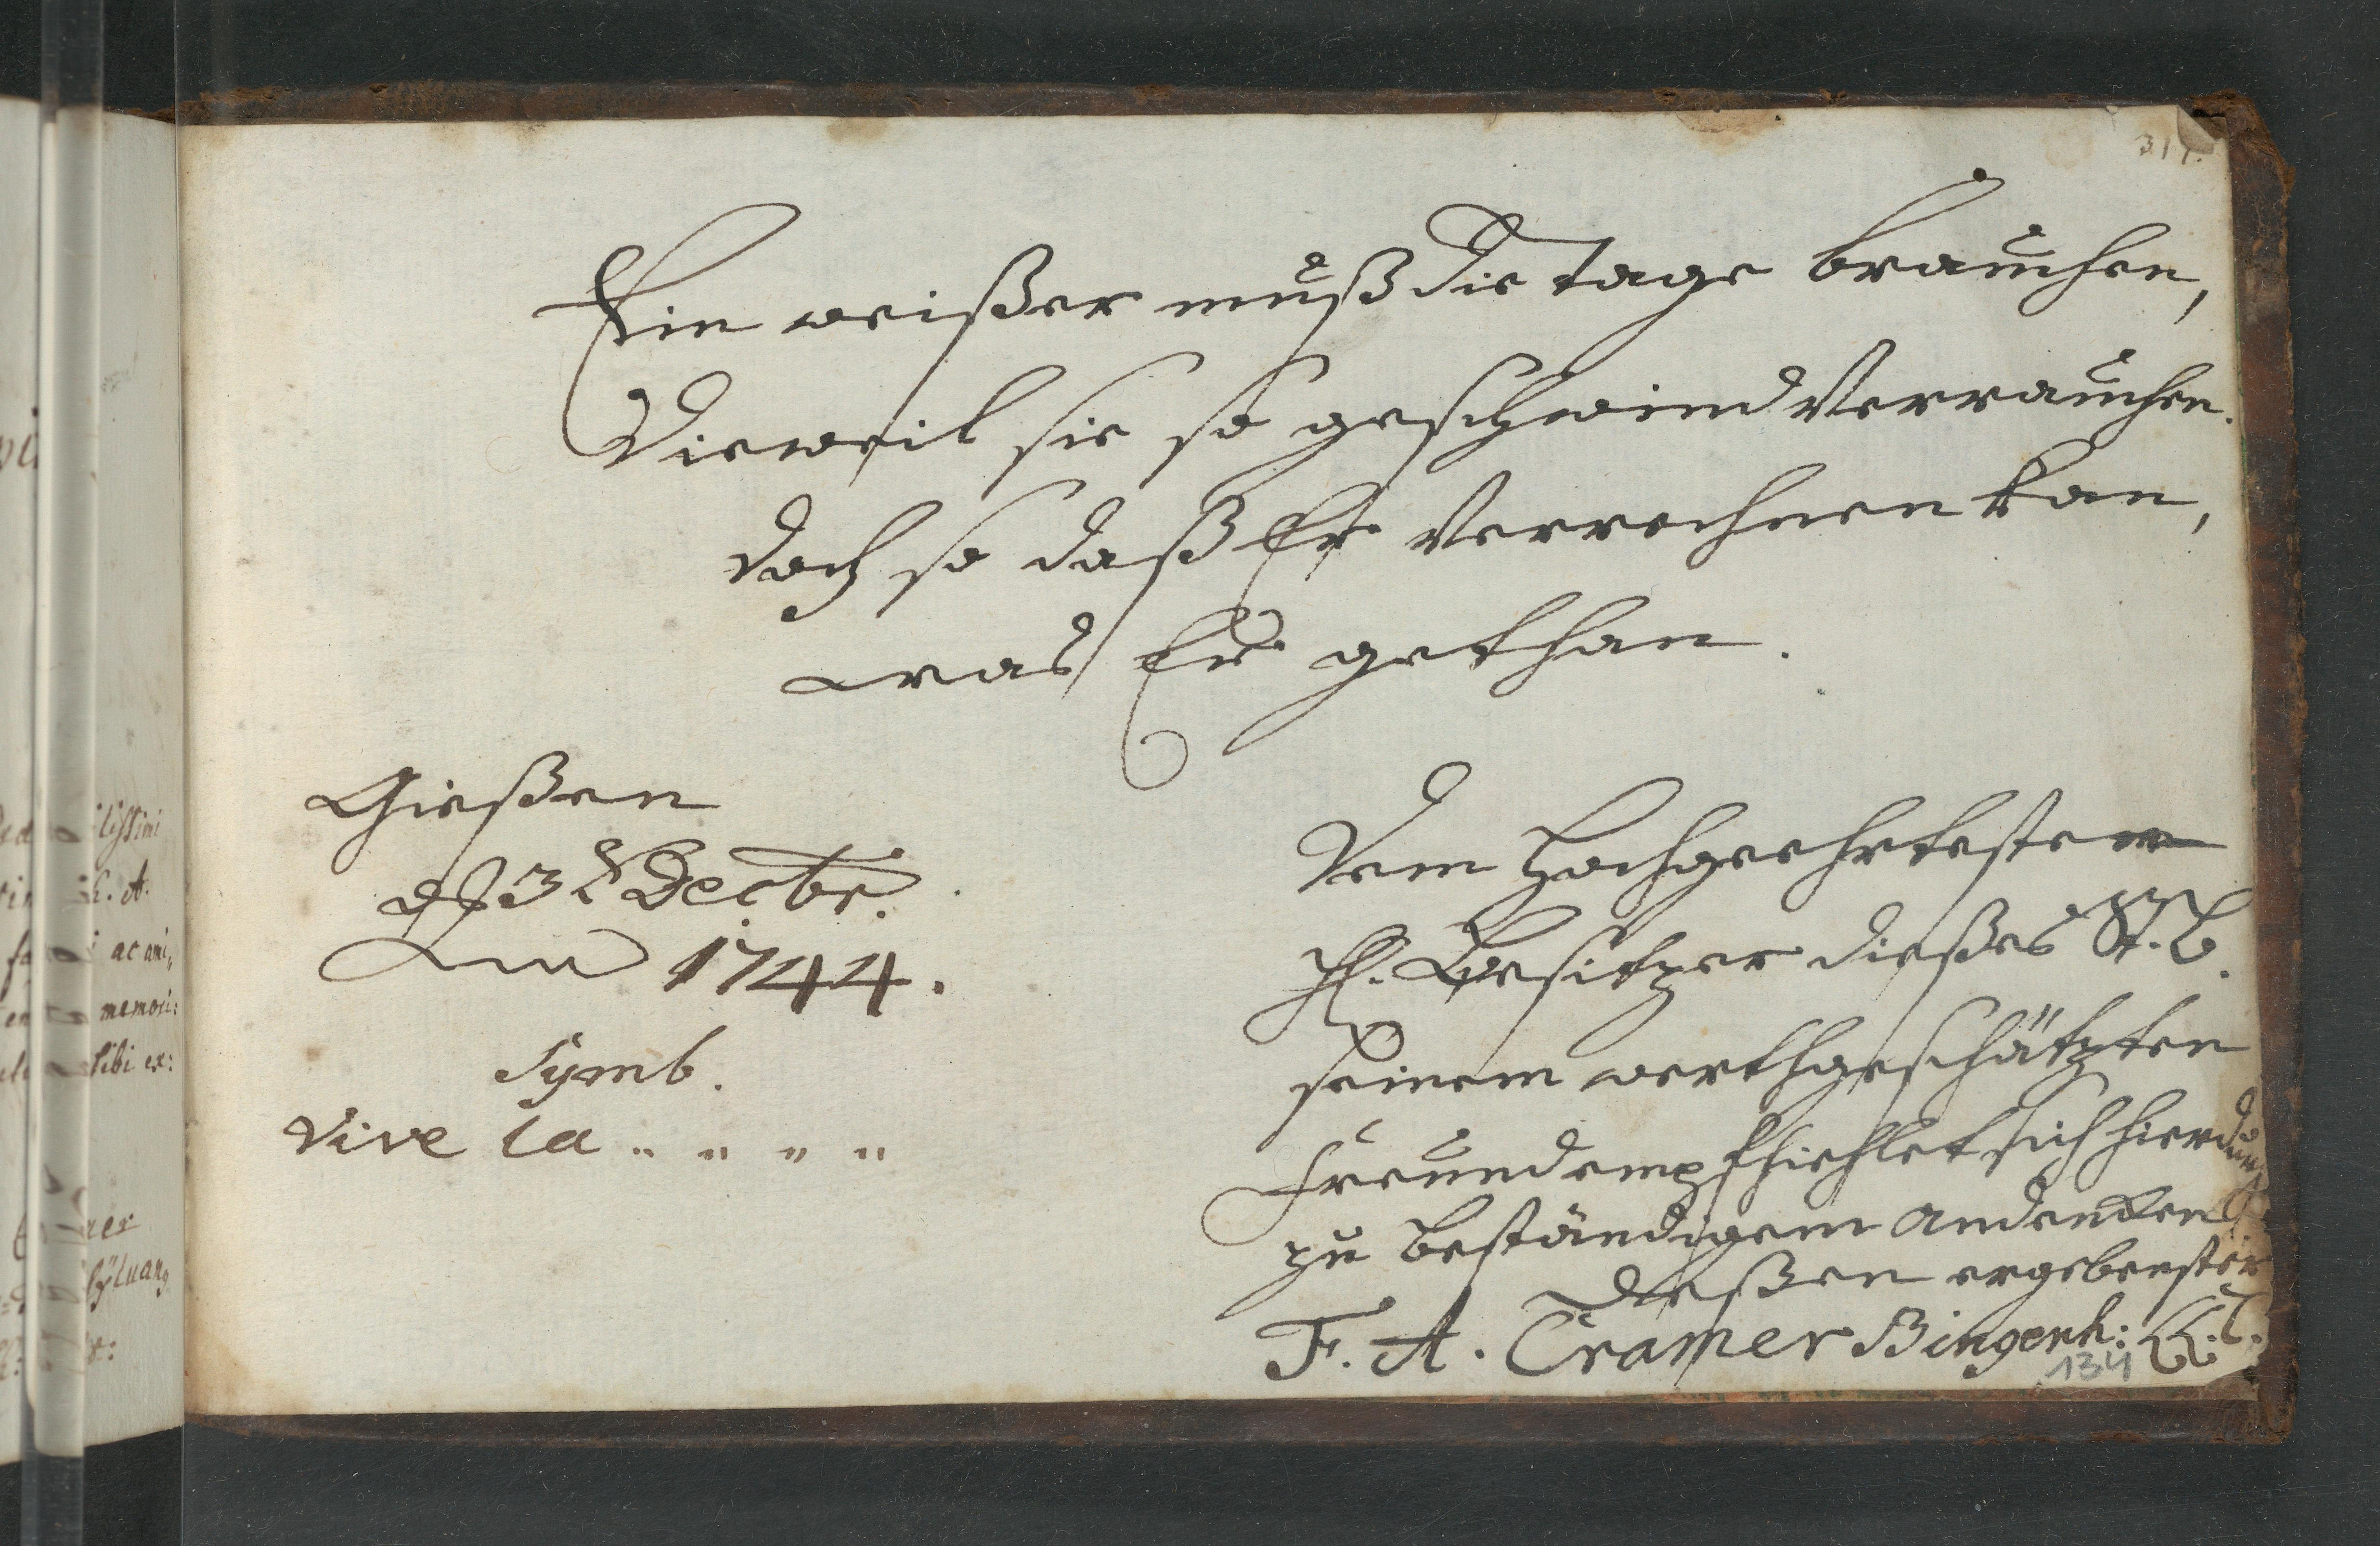 317.
Ein weißer muß die Tage brauchen,
Dieweil sie so geschwind verrauchen.
doch so daß Er verrechnen kan,
was Er gethan.
Gießen
d 3t Decbr.
1744.
Symb.
Vive la .. .. .. ..
Dem Hochgeehrtesten
H. Besitzer dießes St. B.
seinem werthgeschätzten
Freund empfhiehlet sich hierdurch
zu beständigem andencken
deßen ergebenster
F. A. Cramer Bingenh:
134
lissimi
ac ami,
memori:
sibi ex: